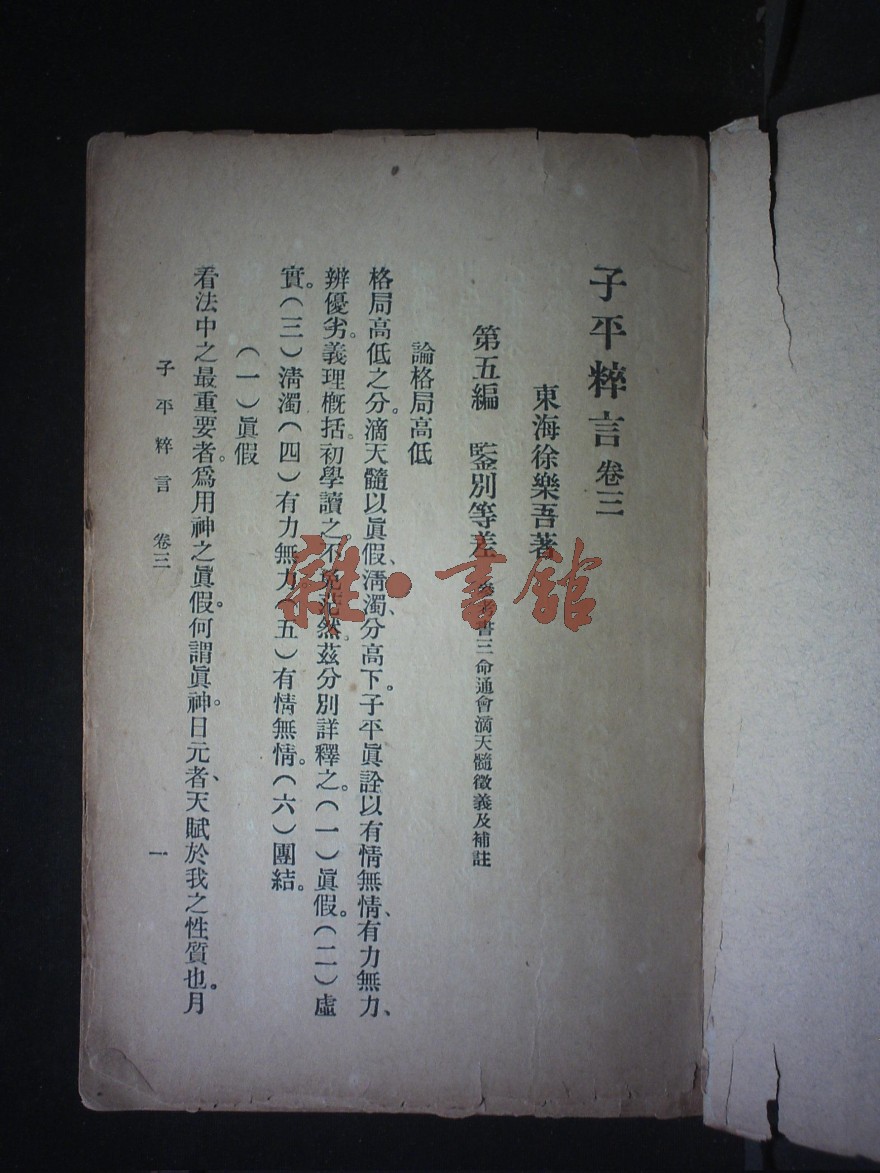 子平粹言卷三
東海徐樂吾著
第五編　鑒別等差　書三命通會滴天髓徵義及補註
論格局高低
格局高低之分。滴天髓以眞假、淸濁、分高下。子平眞詮以有情無情、有力無力、
辨優劣。義理槪括。初學讀之不免茫然。茲分別詳釋之。(一)眞假。(二)虛
實。(三)淸濁(四)有力無力(五)有情無情。(六)團結。
(一)眞假
看法中之最重要者。爲用神之眞假。何謂眞神。日元者、天賦於我之性質也。月
子平粹言　卷三
一
雜·書館